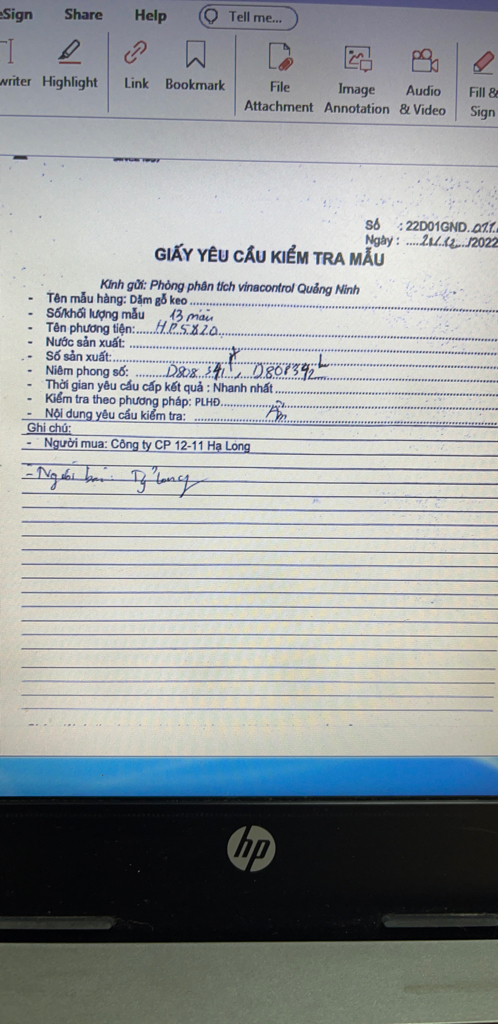 eSign Share Help Tell me...
writer Highlight Link Bookmark File Attachment Image Annotation Audio & Video Fill & Sign
SINCE 1957
Số : 22D01GND.
Ngày : /2022
GIẤY YÊU CẦU KIỂM TRA MẪU
Kính gửi: Phòng phân tích vinacontrol Quảng Ninh
- Tên mẫu hàng: Dăm gỗ keo
- Số/khối lượng mẫu 13 mẫu
- Tên phương tiện: HP5820
- Nước sản xuất:
- Số sản xuất:
- Niêm phong số: D808341, D808342
- Thời gian yêu cầu cấp kết quả : Nhanh nhất
- Kiểm tra theo phương pháp: PLHĐ
- Nội dung yêu cầu kiểm tra: Ẩm
Ghi chú:
- Người mua: Công ty CP 12-11 Hạ Long
- Người bán: Tỷ Long
hp